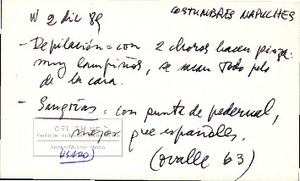 v/ 2 dic 89
COSTUMBRES MAPUCHES
- Depilación = con 2 choros hacen pinza.
muy lampiños, se sacan todo pelo
de la cara.
- Sangrías = con punta de pedernal,
mejor que españoles.
(Ovalle 63)
USADO